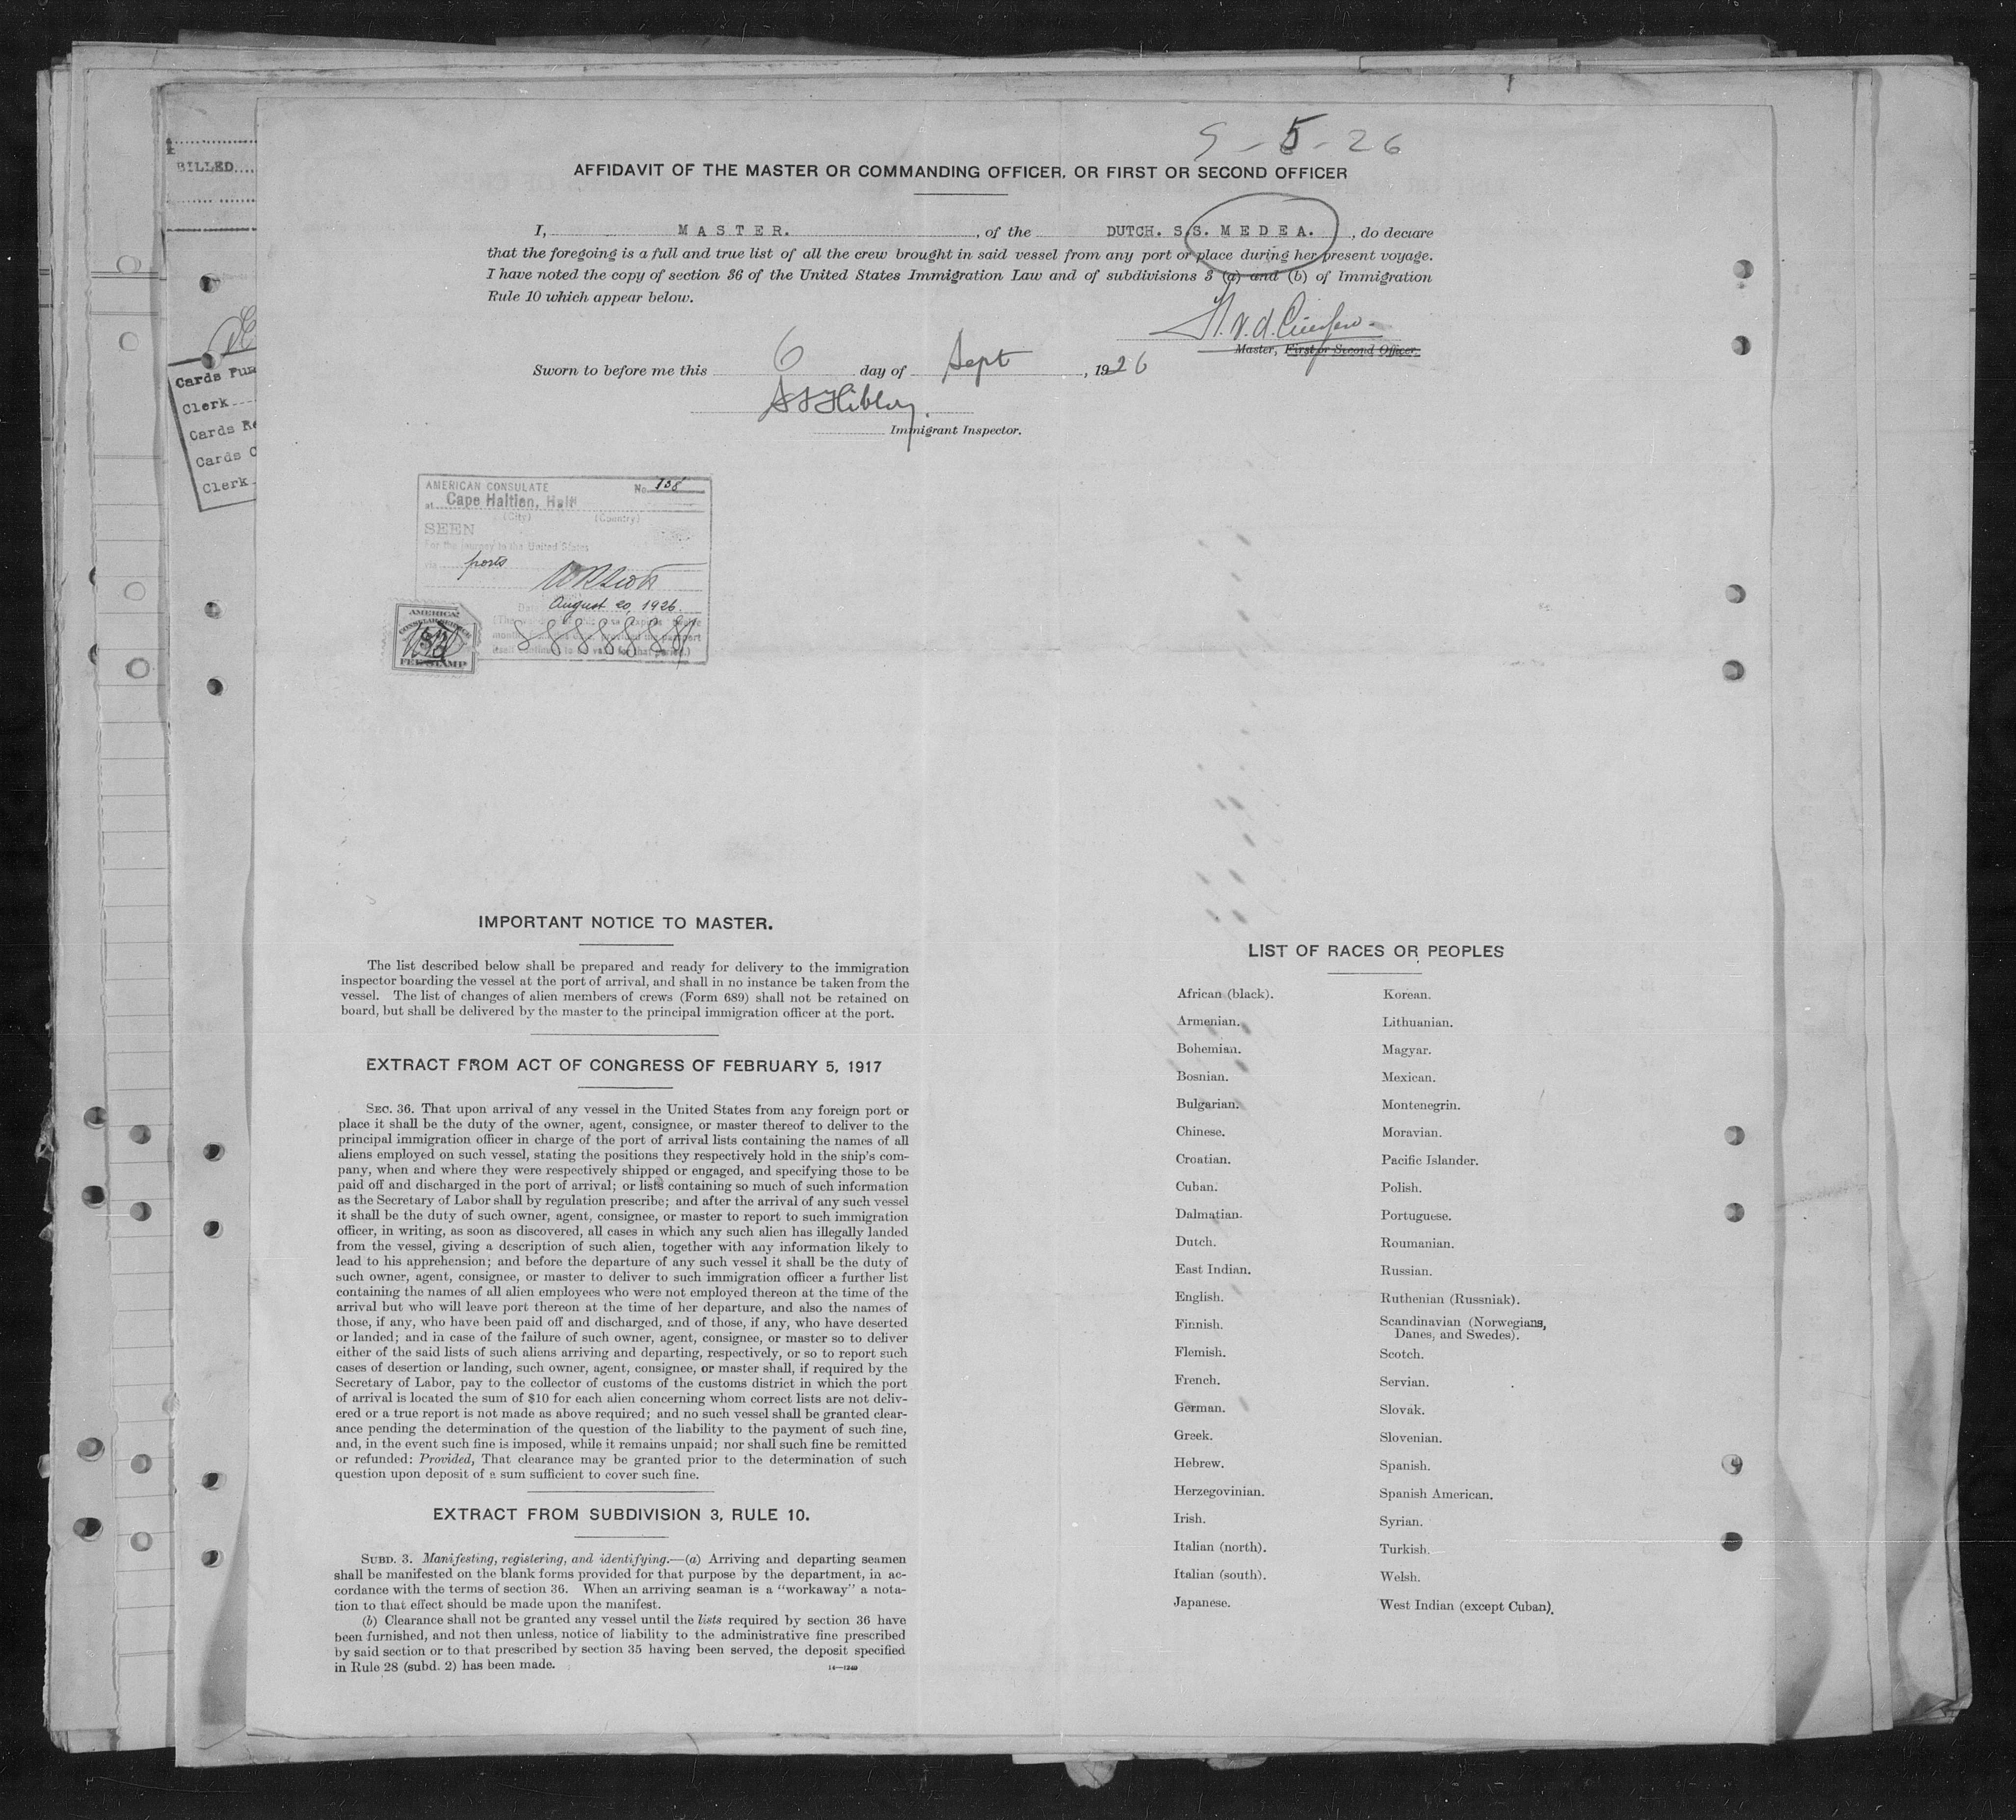 9-5-26
BILLED....
AFFIDAVIT OF THE MASTER OR COMMANDING OFFICER, OR FIRST OR SECOND OFFICER
I, MASTER. , of the DUTCH. S.S. MEDEA. , do declare
that the foregoing is a full and true list of all the crew brought in said vessel from any port or place during her present voyage.
I have noted the copy of section 36 of the United States Immigration Law and of subdivisions 3 (a) and (b) of Immigration
Rule 10 which appear below.
Master, First or Second Officer.
Sworn to before me this 6 day of Sept , 1926
Immigrant Inspector.
Cards Pun
Clerk
Cards Re
Cards C
Clerk
AMERICAN CONSULATE No. 138
at Cape Haitien, Haiti
(City) (Country)
SEEN
For the journey to the United States
via ports
Date August 20, 1926.
FEE STAMP
IMPORTANT NOTICE TO MASTER.
The list described below shall be prepared and ready for delivery to the immigration
inspector boarding the vessel at the port of arrival, and shall in no instance be taken from the
vessel. The list of changes of alien members of crews (Form 689) shall not be retained on
board, but shall be delivered by the master to the principal immigration officer at the port.
EXTRACT FROM ACT OF CONGRESS OF FEBRUARY 5, 1917
SEC. 36. That upon arrival of any vessel in the United States from any foreign port or
place it shall be the duty of the owner, agent, consignee, or master thereof to deliver to the
principal immigration officer in charge of the port of arrival lists containing the names of all
aliens employed on such vessel, stating the positions they respectively hold in the ship's com-
pany, when and where they were respectively shipped or engaged, and specifying those to be
paid off and discharged in the port of arrival; or lists containing so much of such information
as the Secretary of Labor shall by regulation prescribe; and after the arrival of any such vessel
it shall be the duty of such owner, agent, consignee, or master to report to such immigration
officer, in writing, as soon as discovered, all cases in which any such alien has illegally landed
from the vessel, giving a description of such alien, together with any information likely to
lead to his apprehension; and before the departure of any such vessel it shall be the duty of
such owner, agent, consignee, or master to deliver to such immigration officer a further list
containing the names of all alien employees who were not employed thereon at the time of the
arrival but who will leave port thereon at the time of her departure, and also the names of
those, if any, who have been paid off and discharged, and of those, if any, who have deserted
or landed; and in case of the failure of such owner, agent, consignee, or master so to deliver
either of the said lists of such aliens arriving and departing, respectively, or so to report such
cases of desertion or landing, such owner, agent, consignee, or master shall, if required by the
Secretary of Labor, pay to the collector of customs of the customs district in which the port
of arrival is located the sum of $10 for each alien concerning whom correct lists are not deliv-
ered or a true report is not made as above required; and no such vessel shall be granted clear-
ance pending the determination of the question of the liability to the payment of such fine,
and, in the event such fine is imposed, while it remains unpaid; nor shall such fine be remitted
or refunded: Provided, That clearance may be granted prior to the determination of such
question upon deposit of a sum sufficient to cover such fine.
EXTRACT FROM SUBDIVISION 3, RULE 10.
SUBD. 3. Manifesting, registering, and identifying.—(a) Arriving and departing seamen
shall be manifested on the blank forms provided for that purpose by the department, in ac-
cordance with the terms of section 36. When an arriving seaman is a "workaway" a nota-
tion to that effect should be made upon the manifest.
(b) Clearance shall not be granted any vessel until the lists required by section 36 have
been furnished, and not then unless, notice of liability to the administrative fine prescribed
by said section or to that prescribed by section 35 having been served, the deposit specified
in Rule 28 (subd. 2) has been made.
14—1249
LIST OF RACES OR PEOPLES
African (black).
Armenian.
Bohemian.
Bosnian.
Bulgarian.
Chinese.
Croatian.
Cuban.
Dalmatian.
Dutch.
East Indian.
English.
Finnish.
Flemish.
French.
German.
Greek.
Hebrew.
Herzegovinian.
Irish.
Italian (north).
Italian (south).
Japanese.
Korean.
Lithuanian.
Magyar.
Mexican.
Montenegrin.
Moravian.
Pacific Islander.
Polish.
Portuguese.
Roumanian.
Russian.
Ruthenian (Russniak).
Scandinavian (Norwegians,
Danes, and Swedes).
Scotch.
Servian.
Slovak.
Slovenian.
Spanish.
Spanish American.
Syrian.
Turkish.
Welsh.
West Indian (except Cuban).